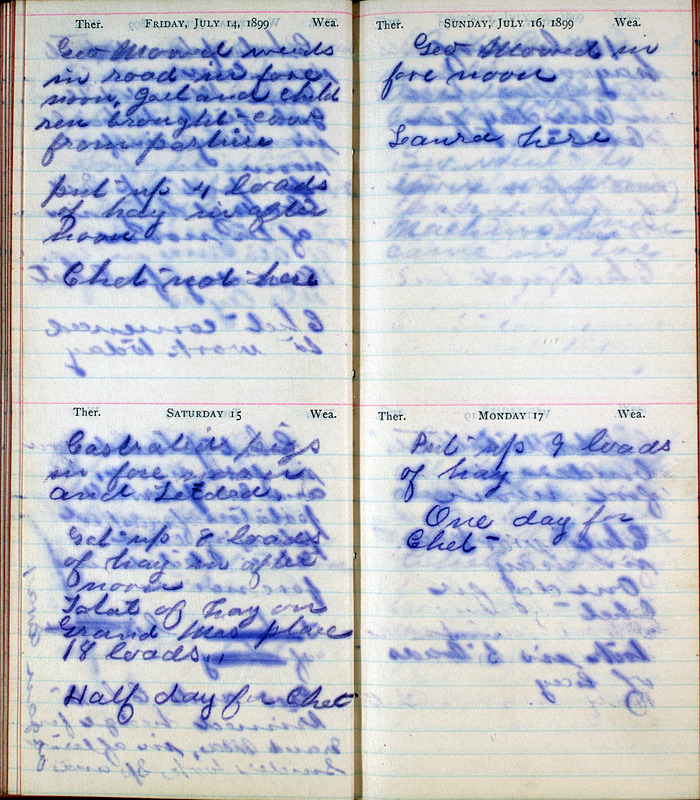 Ther. FRIDAY, JULY 14, 1899 Wea.
Geo Mowed weeds
in road in fore
noon, Gail and child
ren brought cow
from pasture
put up 4 loads
of hay in after
noon
Chet not here
Ther. SATURDAY 15 Wea.
Castrated pigs
in fore noon
and Tedded
Get up 8 loads
of hay in after
noon
Total of hay on
Grand Mas place
18 loads,
Half day for Chet
Ther. SUNDAY, JULY 16, 1899 Wea.
Geo Mowed in
fore noon
Laura here
Ther. MONDAY 17 Wea.
Put up 9 loads
of hay
One day for
Chet